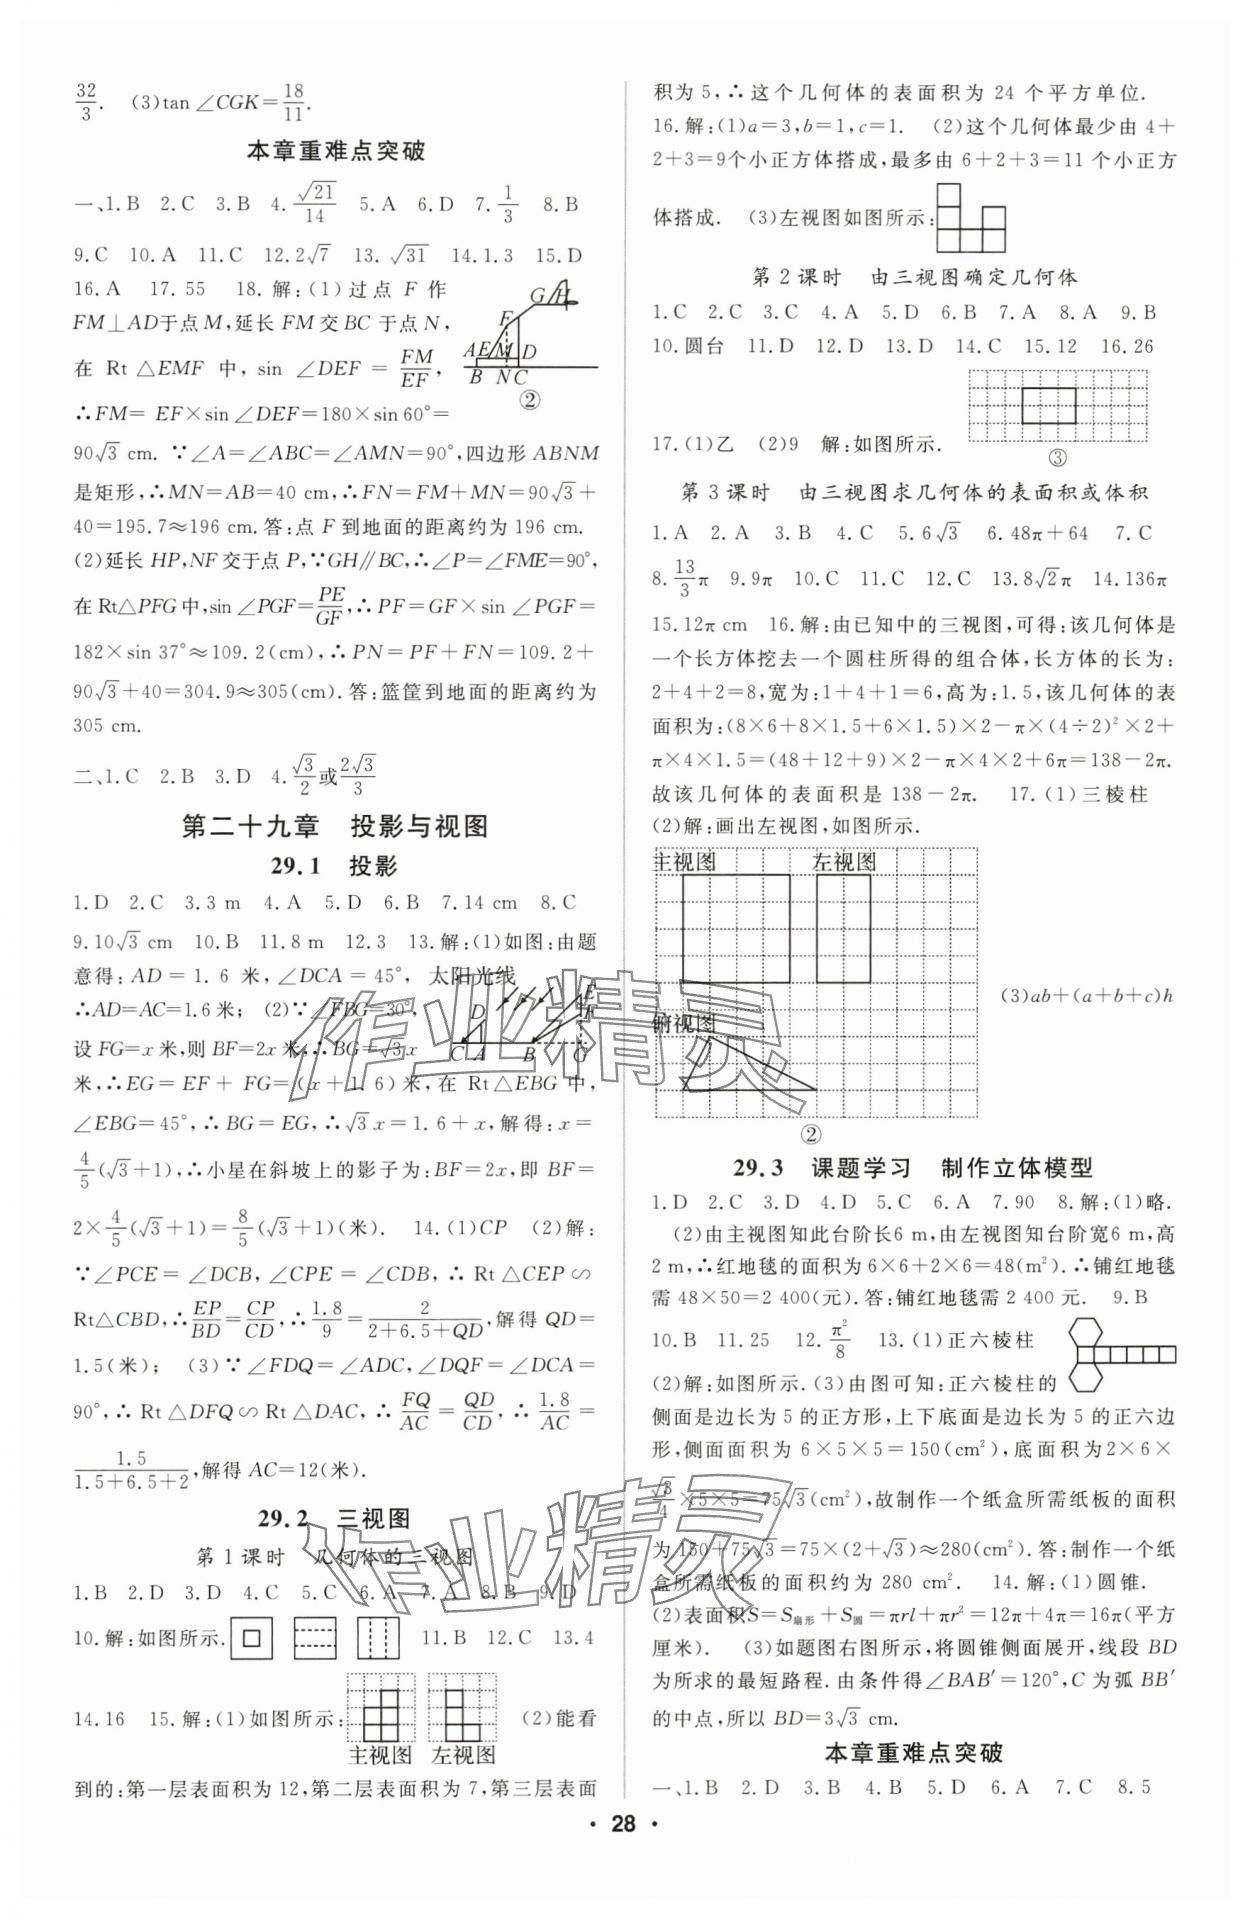 32/3. (3)tan∠CGK=18/11.
本章重难点突破
一、1.B 2.C 3.B 4.√21/14 5.A 6.D 7.1/3 8.B
9.C 10.A 11.C 12.2√7 13.√31 14.1.3 15.D
16.A 17.55 18.解:(1)过点 F 作
FM⊥AD于点M,延长 FM 交 BC 于点 N,
在 Rt △EMF 中, sin ∠DEF = FM/EF,
∴FM= EF×sin∠DEF=180×sin 60°=
90√3 cm. ∵∠A=∠ABC=∠AMN=90°,四边形 ABNM
是矩形,∴MN=AB=40 cm,∴FN=FM+MN=90√3+
40=195.7≈196 cm.答:点 F 到地面的距离约为 196 cm.
(2)延长 HP,NF 交于点 P,∵GH∥BC,∴∠P=∠FME=90°,
在Rt△PFG中,sin∠PGF=PE/GF,∴PF=GF×sin∠PGF=
182×sin 37°≈109.2(cm),∴PN=PF+FN=109.2+
90√3+40=304.9≈305(cm).答:篮筐到地面的距离约为
305 cm.
G H F A E M D B N C
②
二、1.C 2.B 3.D 4.√3/2或2√3/3
第二十九章 投影与视图
29.1 投影
1.D 2.C 3.3 m 4.A 5.D 6.B 7.14 cm 8.C
9.10√3 cm 10.B 11.8 m 12.3 13.解:(1)如图:由题
意得:AD=1.6 米,∠DCA=45°,
∴AD=AC=1.6米; (2)∵∠FBG=30°,
设 FG=x 米,则 BF=2x 米,∴BG=√3x
太阳光线
D E F C A B G
米,∴EG=EF+FG=(x+1.6)米,在 Rt△EBG 中,
∠EBG=45°,∴BG=EG,∴√3x=1.6+x,解得:x=
4/5(√3+1),∴小星在斜坡上的影子为:BF=2x,即 BF=
2×4/5(√3+1)=8/5(√3+1)(米). 14.(1)CP (2)解:
∵∠PCE=∠DCB,∠CPE=∠CDB,∴Rt△CEP∽
Rt△CBD,∴EP/BD=CP/CD,∴1.8/9=2/(2+6.5+QD),解得 QD=
1.5(米); (3)∵∠FDQ=∠ADC,∠DQF=∠DCA=
90°,∴Rt△DFQ∽Rt△DAC,∴FQ/AC=QD/CD,∴1.8/AC=
1.5/(1.5+6.5+2),解得 AC=12(米).
29.2 三视图
第1课时 几何体的三视图
1.B 2.D 3.D 4.C 5.C 6.A 7.A 8.B 9.D
10.解:如图所示. 11.B 12.C 13.4
14.16 15.解:(1)如图所示: (2)能看
主视图 左视图
到的:第一层表面积为 12,第二层表面积为 7,第三层表面
积为 5,∴这个几何体的表面积为 24 个平方单位.
16.解:(1)a=3,b=1,c=1. (2)这个几何体最少由 4+
2+3=9个小正方体搭成,最多由 6+2+3=11 个小正方
体搭成. (3)左视图如图所示:
第2课时 由三视图确定几何体
1.C 2.C 3.C 4.A 5.D 6.B 7.A 8.A 9.B
10.圆台 11.D 12.D 13.D 14.C 15.12 16.26
17.(1)乙 (2)9 解:如图所示.
③
第3课时 由三视图求几何体的表面积或体积
1.A 2.A 3.B 4.C 5.6√3 6.48π+64 7.C
8.13/3π 9.9π 10.C 11.C 12.C 13.8√2π 14.136π
15.12π cm 16.解:由已知中的三视图,可得:该几何体是
一个长方体挖去一个圆柱所得的组合体,长方体的长为:
2+4+2=8,宽为:1+4+1=6,高为:1.5,该几何体的表
面积为:(8×6+8×1.5+6×1.5)×2-π×(4÷2)²×2+
π×4×1.5=(48+12+9)×2-π×4×2+6π=138-2π.
故该几何体的表面积是 138-2π. 17.(1)三棱柱
(2)解:画出左视图,如图所示.
主视图 左视图
(3)ab+(a+b+c)h
俯视图
②
29.3 课题学习 制作立体模型
1.D 2.C 3.D 4.D 5.C 6.A 7.90 8.解:(1)略.
(2)由主视图知此台阶长6 m,由左视图知台阶宽6 m,高
2 m,∴红地毯的面积为 6×6+2×6=48(m²).∴铺红地毯
需 48×50=2 400(元).答:铺红地毯需 2 400 元. 9.B
10.B 11.25 12.π²/8 13.(1)正六棱柱
(2)解:如图所示.(3)由图可知:正六棱柱的
侧面是边长为 5 的正方形,上下底面是边长为 5 的正六边
形,侧面面积为 6×5×5=150(cm²),底面积为2×6×
√3/4×5×5=75√3(cm²),故制作一个纸盒所需纸板的面积
为 150+75√3=75×(2+√3)≈280(cm²).答:制作一个纸
盒所需纸板的面积约为 280 cm². 14.解:(1)圆锥.
(2)表面积S=S扇形+S圆=πrl+πr²=12π+4π=16π(平方
厘米). (3)如题图右图所示,将圆锥侧面展开,线段 BD
为所求的最短路程.由条件得∠BAB′=120°,C 为弧 BB′
的中点,所以 BD=3√3 cm.
本章重难点突破
一、1.B 2.D 3.B 4.B 5.D 6.A 7.C 8.5
· 28 ·
作业精灵
作业精灵